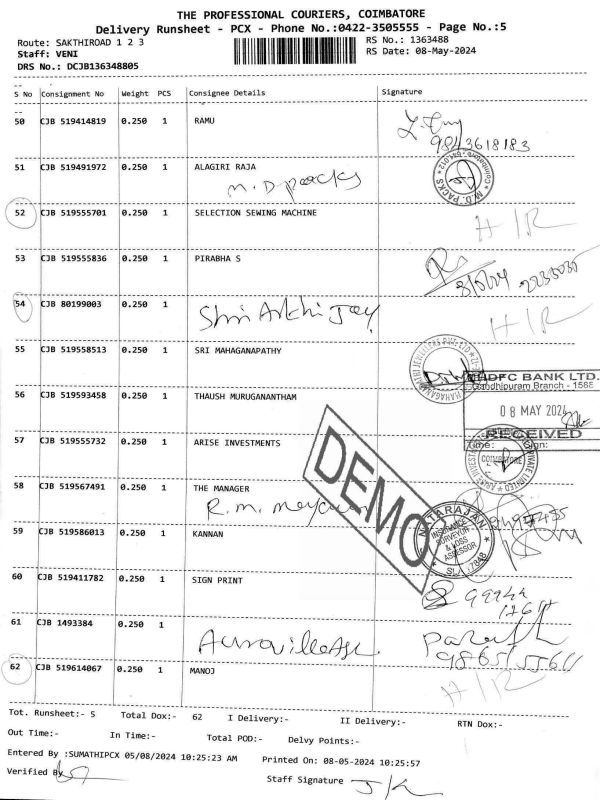 THE PROFESSIONAL COURIERS, COIMBATORE
Delivery Runsheet - PCX - Phone No.:0422-3505555 - Page No.:5
Route: SAKTHIROAD 1 2 3
RS No.: 1363488
Staff: VENI
RS Date: 08-May-2024
DRS No.: DCJB136348805
S No Consignment No Weight PCS Consignee Details Signature
50 CJB 519414819 0.250 1 RAMU
9843618183
51 CJB 519491972 0.250 1 ALAGIRI RAJA
M.D packs
M.D. PACKS
52 CJB 519555701 0.250 1 SELECTION SEWING MACHINE H/R
53 CJB 519555836 0.250 1 PIRABHA S
54 CJB 80199003 0.250 1 H/R
55 CJB 519558513 0.250 1 SRI MAHAGANAPATHY
HDFC BANK LTD.
Gandhipuram Branch - 1568
56 CJB 519593458 0.250 1 THAUSH MURUGANANTHAM
08 MAY 2024
RECEIVED
Time: Sign:
57 CJB 519555732 0.250 1 ARISE INVESTMENTS
COIMBATORE
DEMO
58 CJB 519567491 0.250 1 THE MANAGER
R.m.
59 CJB 519586013 0.250 1 KANNAN
NATARAJAN
INSURANCE
SURVEYOR
& LOSS
ASSESSOR
60 CJB 519411782 0.250 1 SIGN PRINT
61 CJB 1493384 0.250 1
62 CJB 519614067 0.250 1 MANOJ H/R
Tot. Runsheet:- 5 Total Dox:- 62 I Delivery:- II Delivery:- RTN Dox:-
Out Time:- In Time:- Total POD:- Delvy Points:-
Entered By :SUMATHIPCX 05/08/2024 10:25:23 AM Printed On: 08-05-2024 10:25:57
Verified By
Staff Signature